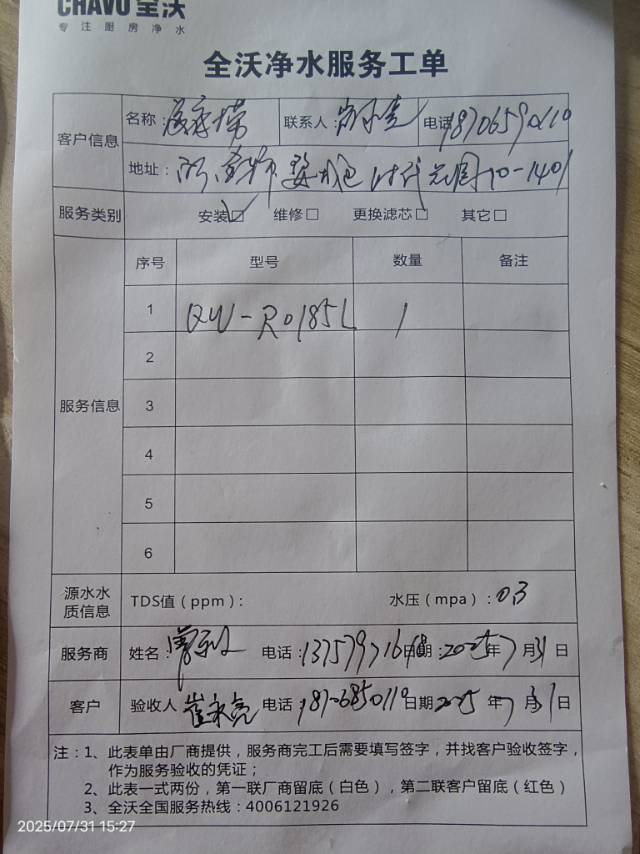 CHAVO 全沃
专注厨房净水
全沃净水服务工单
客户信息
名称： 联系人： 电话
地址： 时代 10-1401
服务类别 安装☑ 维修□ 更换滤芯□ 其它□
服务信息
序号 型号 数量 备注
1 QW-RO185L 1
2
3
4
5
6
源水水质信息 TDS值（ppm）： 水压（mpa）：0.3
服务商 姓名： 电话： 日期：2025年7月31日
客户 验收人 崔永亮 电话 日期2025年7月31日
注：1、此表单由厂商提供，服务商完工后需要填写签字，并找客户验收签字，
作为服务验收的凭证；
2、此表一式两份，第一联厂商留底（白色），第二联客户留底（红色）
3、全沃全国服务热线：4006121926
2025/07/31 15:27